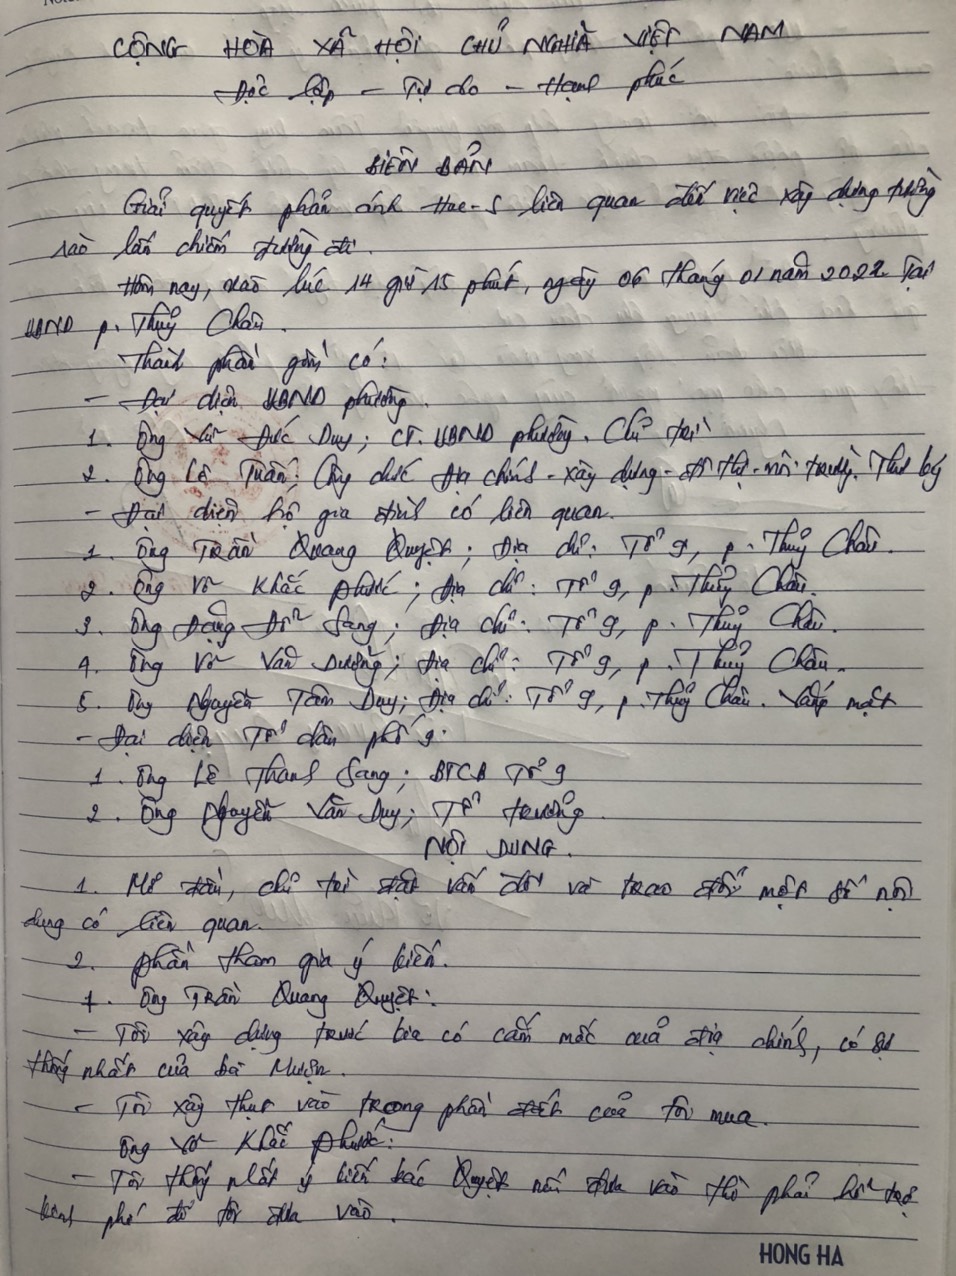 CỘNG HÒA XÃ HỘI CHỦ NGHĨA VIỆT NAM
Độc lập - Tự do - Hạnh phúc
BIÊN BẢN
Giải quyết phản ánh Hue-S liên quan đến việc xây dựng tường
rào lấn chiếm đường đi.
Hôm nay, vào lúc 14 giờ 15 phút, ngày 06 tháng 01 năm 2022 Tại
UBND p. Thuỷ Châu.
Thành phần gồm có:
- Đại diện UBND phường.
1. Ông Đức Duy; CT. UBND phường. Chủ trì
2. Ông Lê Tuấn; Công chức Địa chính - xây dựng - đô thị - môi trường. Thư ký
- Đại diện hộ gia đình có liên quan.
1. Ông Trần Quang Quyết; Địa chỉ: Tổ 9, p. Thuỷ Châu.
2. Ông Võ Khắc Phước; Địa chỉ: Tổ 9, p. Thuỷ Châu.
3. Ông Đặng Sang; Địa chỉ: Tổ 9, p. Thuỷ Châu.
4. Ông Võ Văn Dưỡng; Địa chỉ: Tổ 9, p. Thuỷ Châu.
5. Ông Nguyễn Tâm Duy; Địa chỉ: Tổ 9, p. Thuỷ Châu. Vắng mặt
- Đại diện Tổ dân phố 9:
1. Ông Lê Thanh Sang; BTCB Tổ 9
2. Ông Nguyễn Văn Duy; Tổ trưởng.
NỘI DUNG.
1. Mở đầu, chủ trì đặt vấn đề và trao đổi một số nội
dung có liên quan.
2. Phần tham gia ý kiến.
+. Ông Trần Quang Quyết:
- Tôi xây dựng trước kia có cắm mốc của địa chính, có sự
thống nhất của bà Mượn.
- Tôi xây thụt vào trong phần đất của tôi mua.
Ông Võ Khắc Phước:
- Tôi thống nhất ý kiến bác Quyết nếu đưa vào thì phải hỗ trợ
kinh phí để tôi đưa vào.
HONG HA